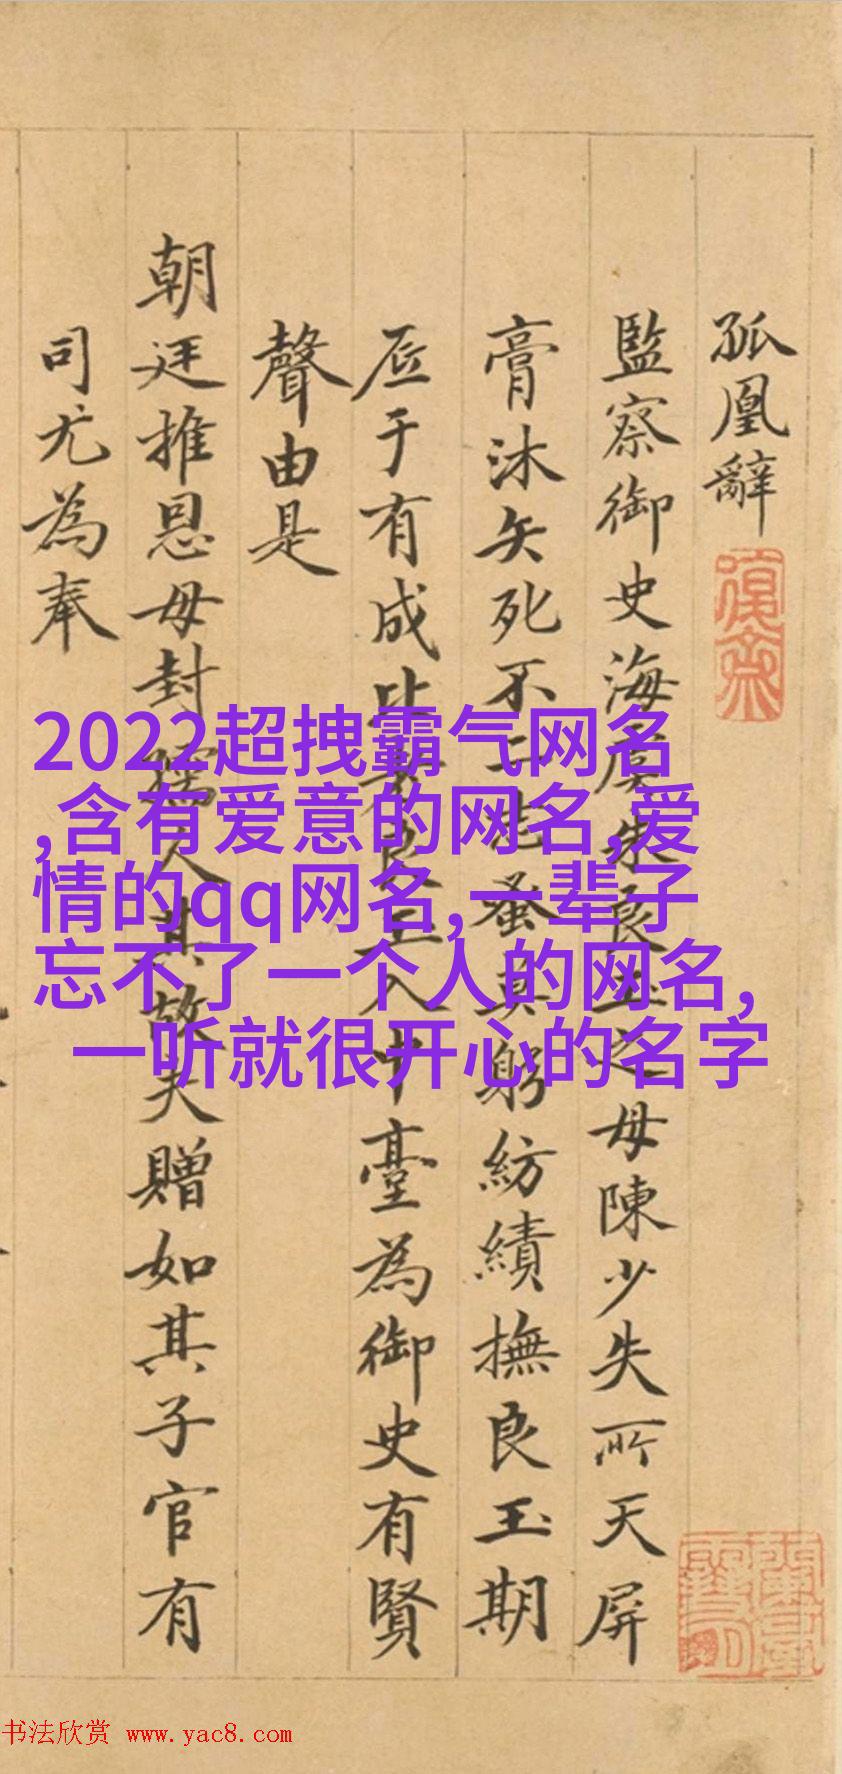 孤凰辭
監察御史海虞朱良玉之母陳少失所天屏
膏沐矢死不二志蚤具躬紡績撫良玉期
底于有成比良玉入中臺為御史有賢
聲由是
朝廷推恩母封孺人其故夫贈如其子官有
司尤為奉
2022超拽霸气网名
,含有爱意的网名,爱
情的qq网名,一辈子
忘不了一个人的网名,
一听就很开心的名字
书法欣赏 www.yac8.com